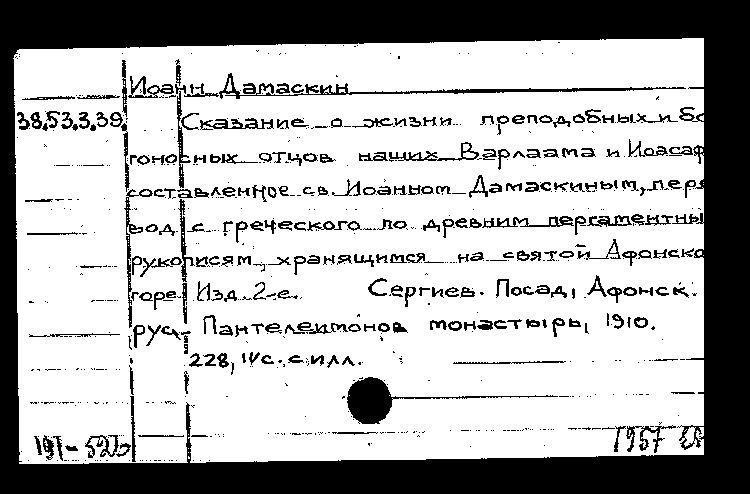 Иоанн Дамаскин
38.53.3.39. Сказание о жизни преподобных и Бо
гоносных отцов наших Варлаама и Иоасаф
составленное св. Иоанном Дамаскиным, пере
вод с греческого по древним пергаментны
рукописям, хранящимся на святой Афонско
горе. Изд. 2-е. Сергиев. Посад, Афонск.
рус.- Пантелеимонов монастырь, 1910.
228, IV с. с илл.
1957